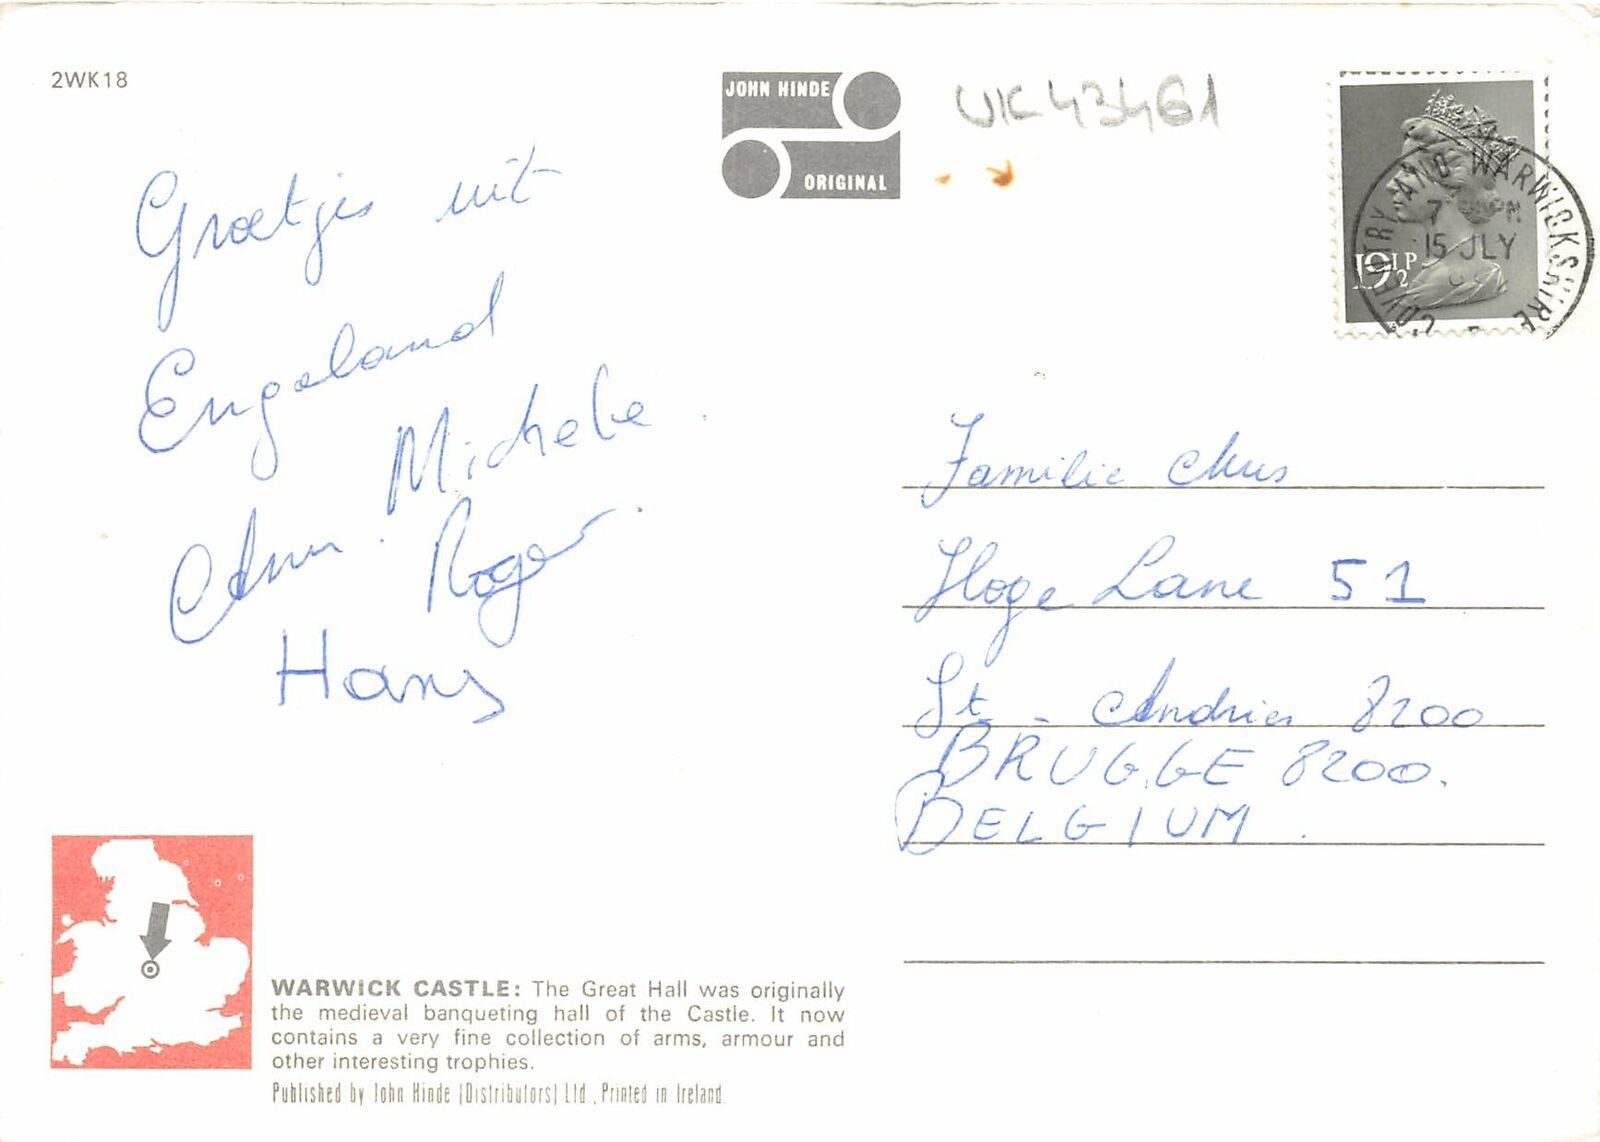 2WK18
JOHN HINDE
ORIGINAL
UK43461
19½P
COVENTRY AND WARWICKSHIRE
7 PM
15 JLY
Groetjes uit
Engeland
Michele.
Ann. Roger.
Hans
Familie
Hoge Lane 51
St - Andries 8200
BRUGGE 8200.
BELGIUM.
WARWICK CASTLE: The Great Hall was originally
the medieval banqueting hall of the Castle. It now
contains a very fine collection of arms, armour and
other interesting trophies.
Published by John Hinde (Distributors) Ltd., Printed in Ireland.